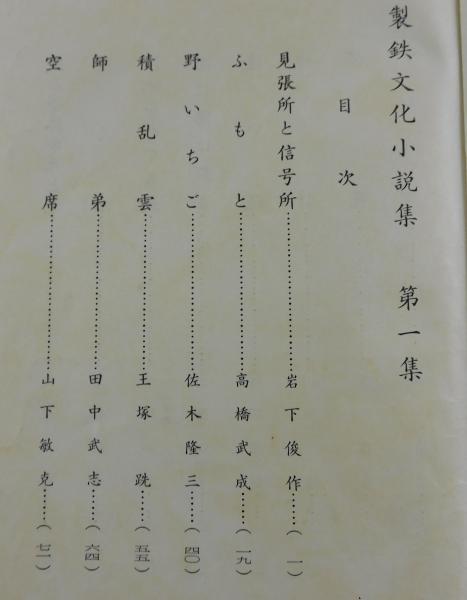 製鉄文化小説集 第一集
目次
見張所と信号所……岩下俊作……(一)
ふもと……高橋武成……(一九)
野いちご……佐木隆三……(四〇)
積乱雲……王塚跣……(五五)
師弟……田中武志……(六四)
空席……山下敏克……(七一)